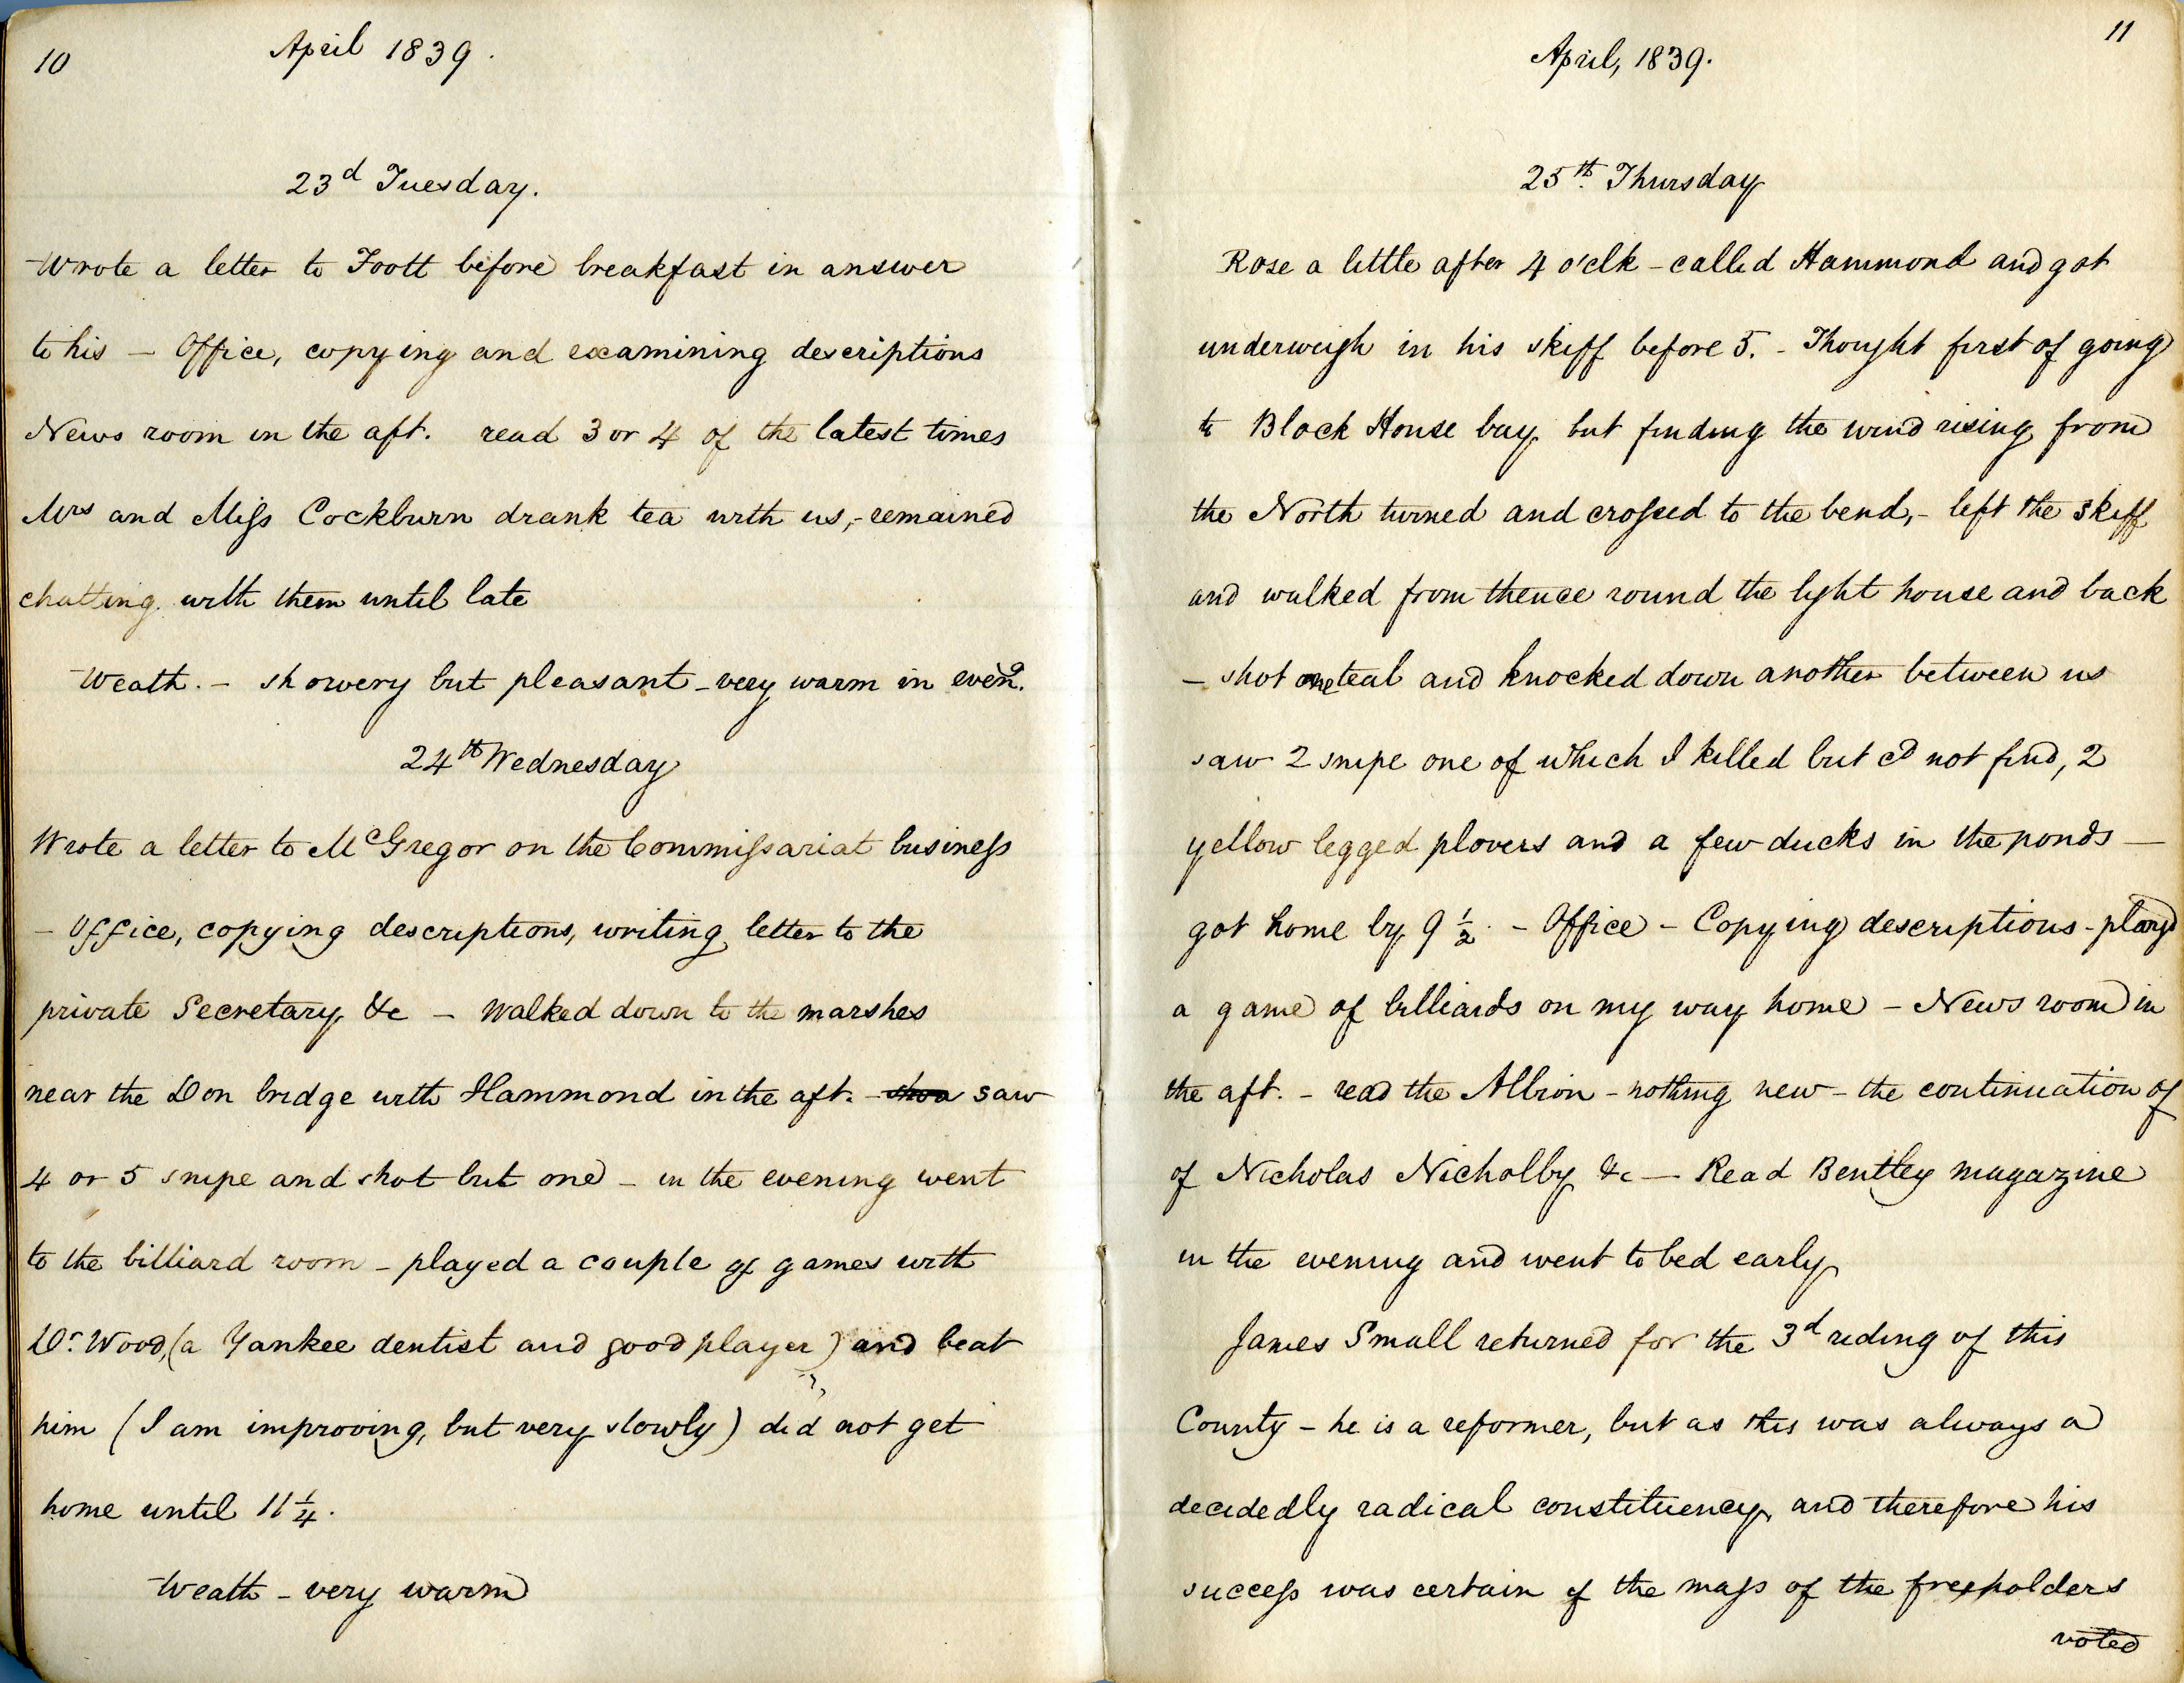 10
April 1839.
23d Tuesday.
Wrote a letter to Foott before breakfast in answer
to his – Office, copying and examining descriptions
News room in the aft. read 3 or 4 of the latest times
Mrs and Miſs Cockburn drank tea with us,- remained
chatting with them until late
Weath. – showery but pleasant – very warm in eveng.
24th Wednesday
Wrote a letter to McGregor on the Commiſsariat buſineſs
– Office, copying descriptions, writing letter to the
private Secretary &c – Walked down to the marshes
near the Don bridge with Hammond in the aft. – shoa saw
4 or 5 snipe and shot but one – in the evening went
to the billiard room – played a couple of games with
Dr. Wood, (a Yankee dentist and good player) and beat
him (I am improving, but very slowly) did not get
home until 11 1/4.
Weath – very warm
11
April, 1839.
25th. Thursday
Rose a little after 4 o'clk – called Hammond and got
underweigh in his skiff before 5. – Thought first of going
to Block House bay but finding the wind rising from
the North turned and croſsed to the bend,- left the skiff
and walked from thence round the light house and back
– shot one teal and knocked down another between us
saw 2 snipe one of which I killed but cd not find, 2
yellow legged plovers and a few ducks in the ponds —
got home by 9 1/2. – Office – Copying descriptions – playd
a game of billiards on my way home – News room in
the aft. – read the Albion – nothing new – the continuation of
of Nicholas Nicholby &c — Read Bentley magazine
in the evening and went to bed early
James Small returned for the 3d riding of this
County – he is a reformer, but as this was always a
decidedly radical constituency, and therefore his
succeſs was certain if the maſs of the freeholders
voted